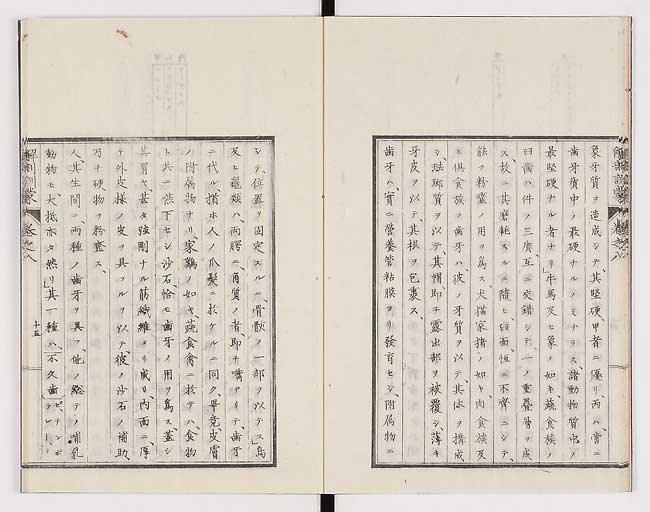 象牙質ヲ造成シテ、其堅硬、甲者ニ優リ、丙ハ、啻ニ
歯牙質中ノ最硬ナルノミナラス、諸動物質中ノ
最堅硬ナル者ナリ」牛馬及ヒ象ノ如キ蔬食族ノ
臼歯ハ、件ノ三質、互ニ交錯シテ、一ノ重疊層ヲ成
ス、故ニ、其磨耗スルニ随ヒ、臼面恒ニ不齊ニシテ、
能ク粉齏ノ用ヲ為ス、犬猫家猪ノ如キ肉食族及
ヒ倶食族ノ歯牙ハ、彼ノ牙質ヲ以テ、其体ヲ構成
シ、琺瑯質ヲ以テ、其帽即チ露出部ヲ被覆シ、薄キ
牙皮ヲ以テ、其根ヲ包裹ス、
歯牙ハ、實ニ營養管粘膜ヨリ發育セシ附属物ニ
シテ、位置ヲ固定スルニ、骨骸ノ一部ヲ以テス」鳥
及ヒ龜類ハ、両腭ニ角質ノ者即チ嘴アリテ、歯牙
ニ代ル、猶ホ人ノ爪髪ニ於ケルニ同ク、畢竟皮膚
ノ附属物ナリ、家鶏ノ如キ蔬食禽ニ於テハ、食物
ト共ニ嚥下セシ沙石、恰モ歯牙ノ用ヲ為ス、蓋シ
其胃、甚タ強剛ナル筋纖維ヨリ成リ、内面ニ厚
キ外皮様ノ皮ヲ具フルヲ以テ、彼ノ沙石ノ補助、
乃チ硬物ヲ粉齏ス、
人其生間ニ、両種ノ歯牙ヲ具フ、他ノ総テノ哺乳
動物モ、大抵亦タ然リ」其一種ハ、不久歯
解剖訓蒙
巻之八
十五